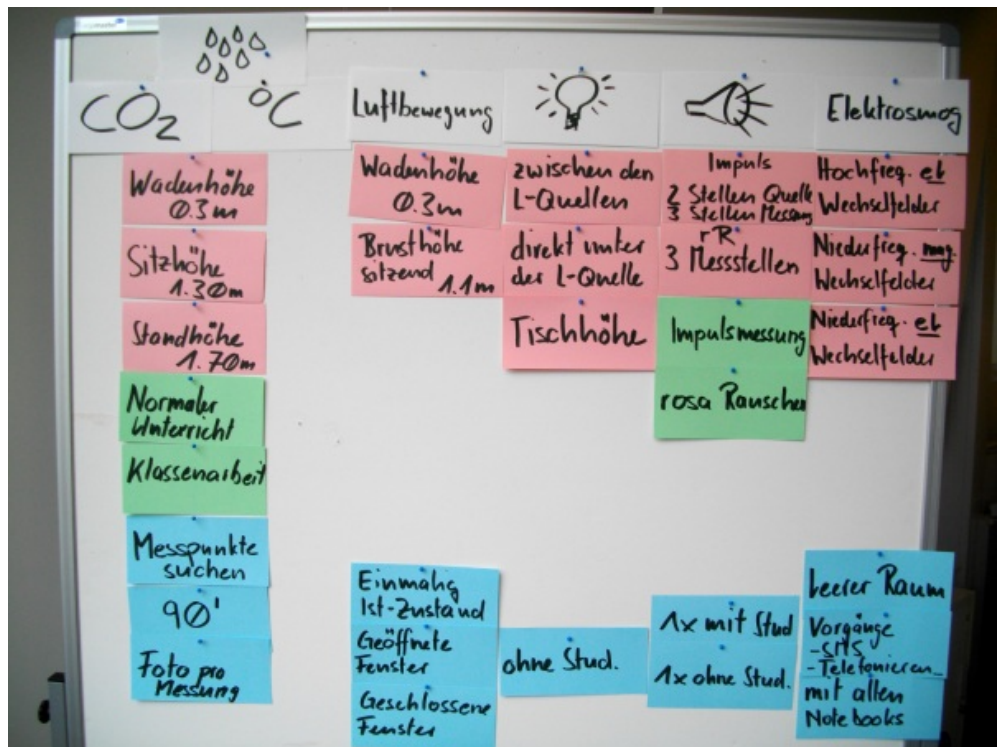 CO2
°C
Luftbewegung
Elektrosmog
Wadenhöhe
0.3m
Sitzhöhe
1.30m
Standhöhe
1.70m
Normaler
Unterricht
Klassenarbeit
Messpunkte
suchen
90'
Foto pro
Messung
Wadenhöhe
0.3m
Brusthöhe
sitzend
1.1m
Einmalig
Ist-Zustand
Geöffnete
Fenster
Geschlossene
Fenster
zwischen den
L-Quellen
direkt unter
der L-Quelle
Tischhöhe
ohne Stud.
Impuls
2 Stellen Quelle
3 Stellen Messung
rR
3 Messstellen
Impulsmessung
rosa Rauschen
1x mit Stud
1x ohne Stud.
Hochfreq. el
Wechselfelder
Niederfreq. mag.
Wechselfelder
Niederfreq. el
Wechselfelder
leerer Raum
Vorgänge
-SMS
-Telefonieren...
mit allen
Notebooks